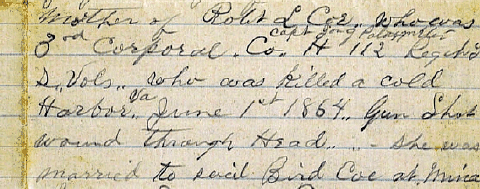 mother of Robt L Coe. who was
Capt
3rd Corporal. Co. H 112 Regt
S. Vols.. who was killed a cold
Harbor, Va June 1st 1864. Gun Shot
wound through Head.. - She was
married to said Bird Coe at